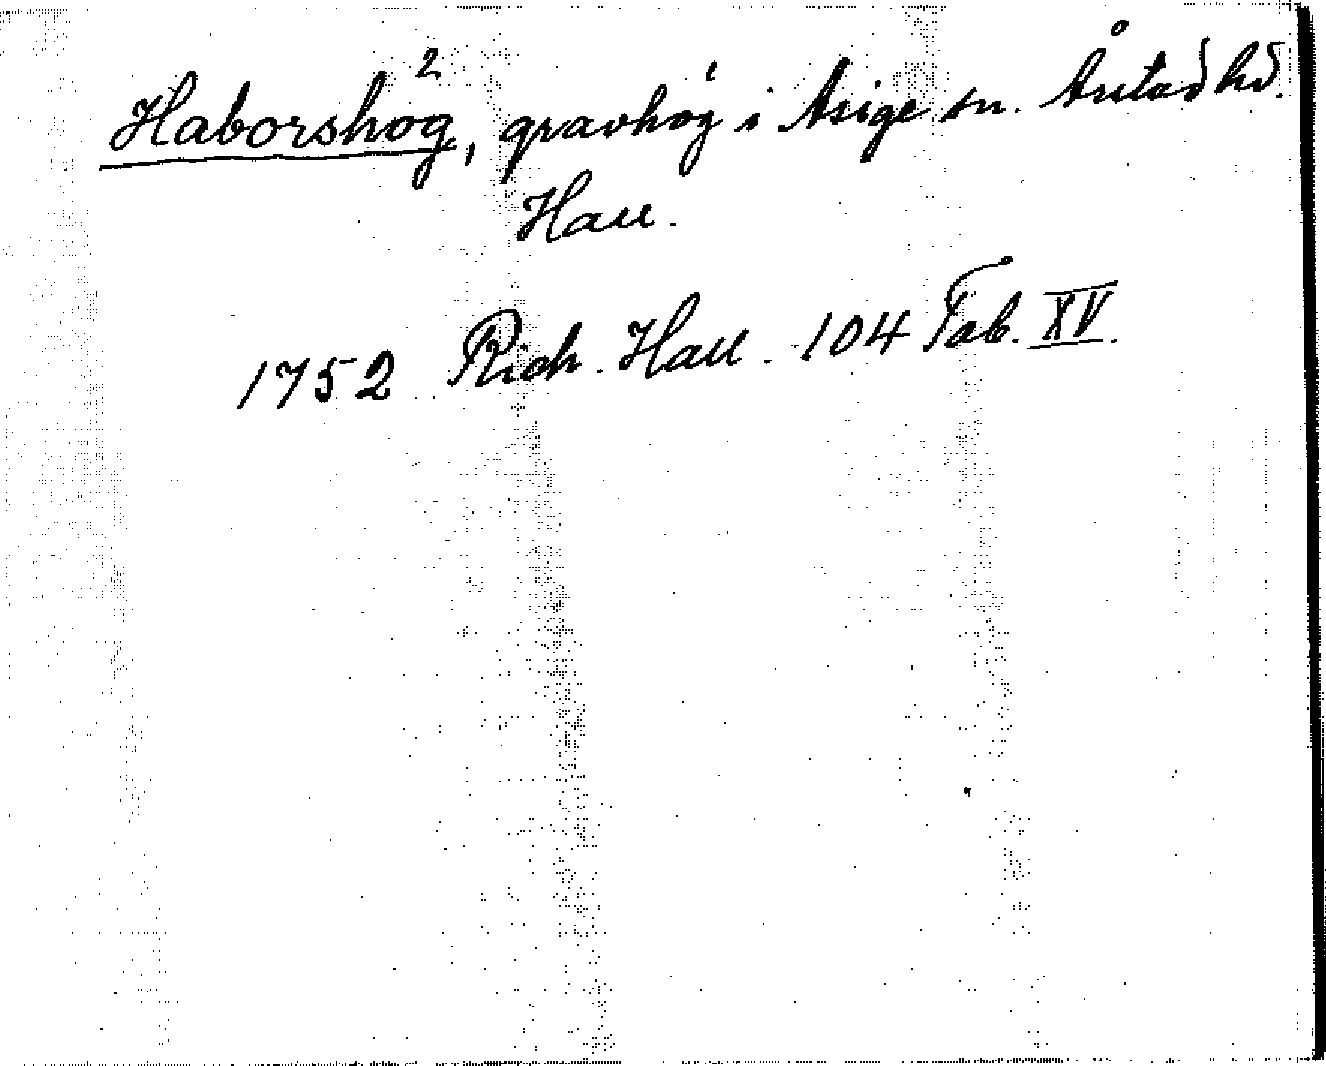 Haborshög, gravhög i Asige sn. Årstad hd.
Hall.
1752 Rich. Hall. 104 Tab. XV.